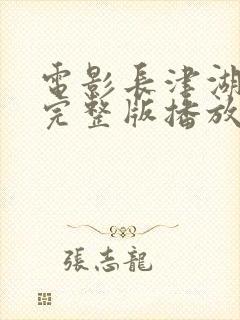 電影長津湖
完整版播放
張志龍